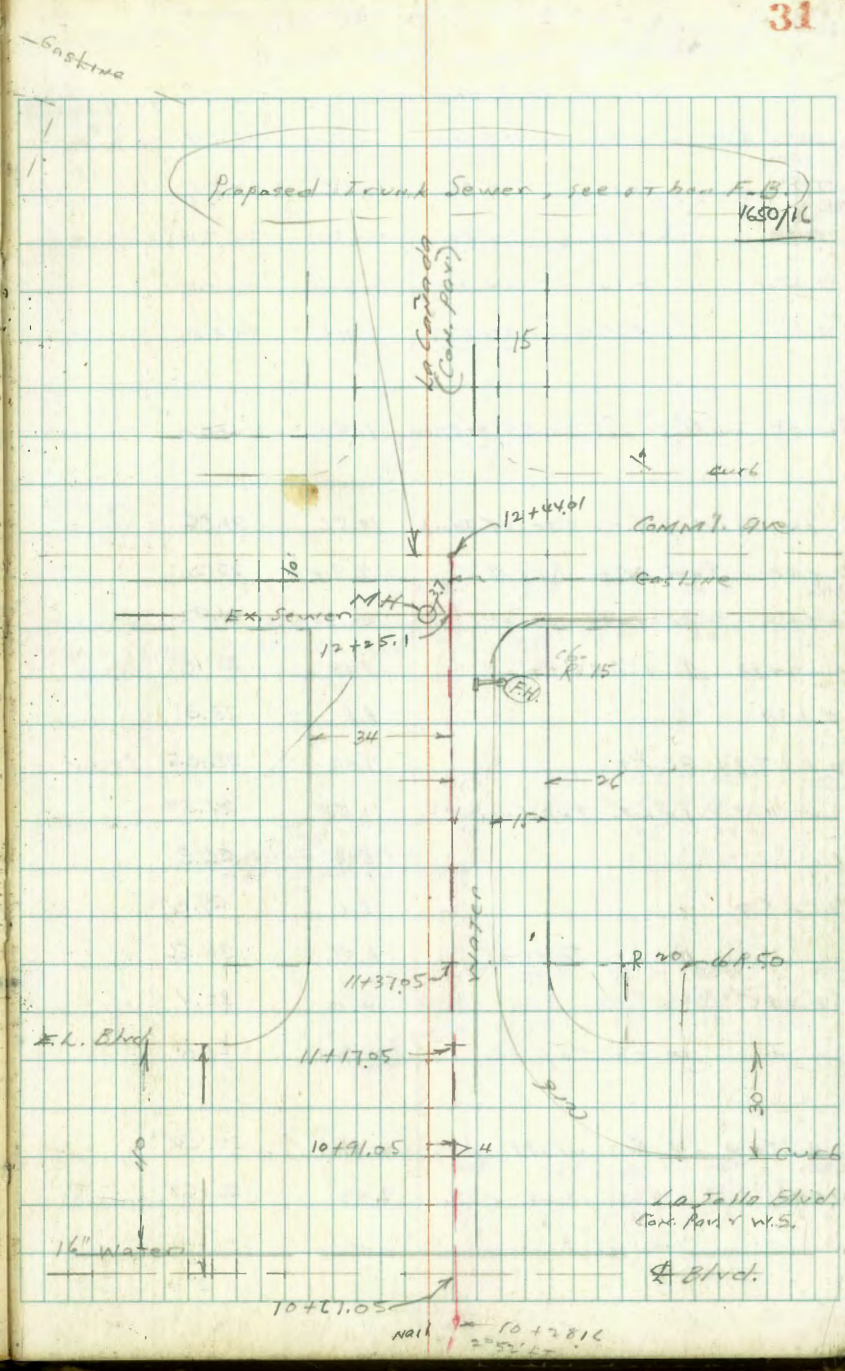 31
Gasline
(Proposed Trunk Sewer, see other F.B.)
1650/16
La Cañada
(Con. Pav.)
15
curb
12+44.01
Comm'l. Ave
10'
Gasline
MH
Ex. Sewer
12+25.1
cb.
R. 15
F.H.
34
26
15
Water
R 20
cb R.50
11+37.05
E.L. Blvd.
11+17.05
Curb
30
10+91.05
4
Curb
40
La Jolla Blvd.
Con. Pav. & W.S.
16" Water
₵ Blvd.
10+67.05
Nail
10+28.16